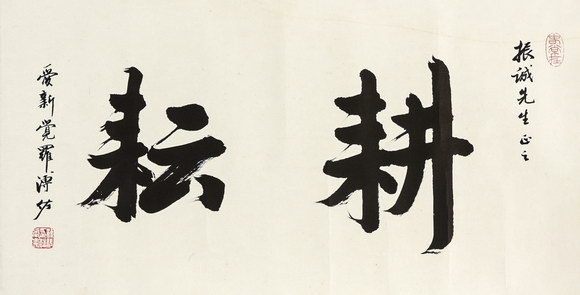 振诚先生正之
耕耘
爱新觉罗溥佐